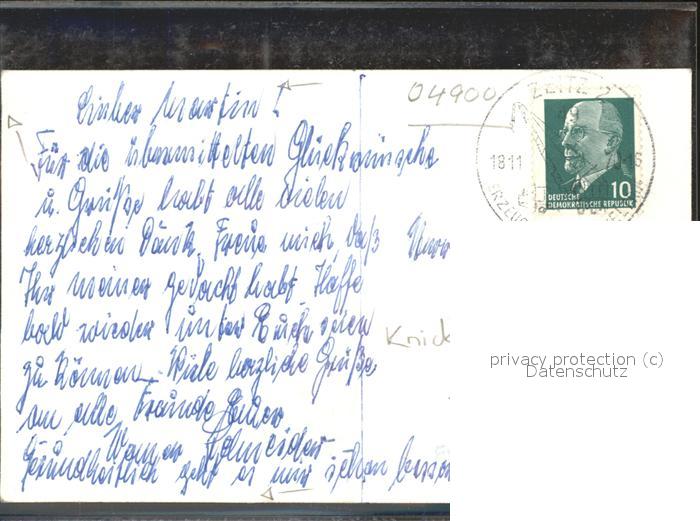 Lieber Martin!
Für die übermittelten Glückwünsche
u. Grüße habt alle vielen
herzlichen Dank. Freue mich, daß
Ihr meiner gedacht habt. Hoffe
bald wieder unter Euch sein
zu können. Viele herzliche Grüße
an alle Freunde Euer
Werner Schneider
Gesundheitlich geht es mir schon besser
04900
ZEITZ 2
18.11
10
DEUTSCHE
DEMOKRATISCHE REPUBLIK
Herrn
Knick
privacy protection (c)
Datenschutz